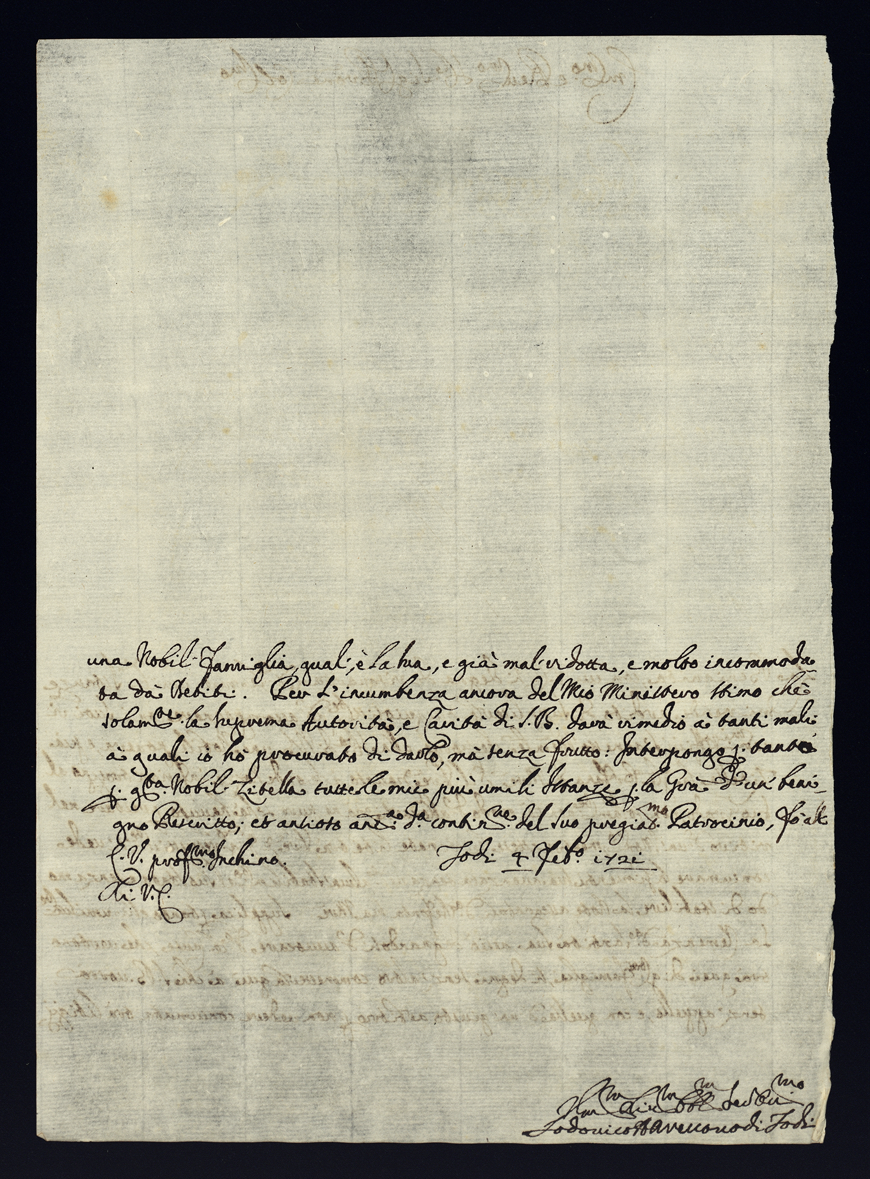 una Nobil Famiglia, qual'è la sua, e già mal ridotta, e molto incommoda
ta dà Debiti. Per l'incumbenza ancora del Mio Ministero stimo che
solam.te la suprema Autorità, e Carità di S. B. darà rimedio à tanti mali
à quali io hò procurato di darlo, mà senza frutto: Interpongo p. tanto
p. q.ta Nobil Zitella tutte le mie più umili Istanze p. la Gra d'un beni-
gno Rescritto; et ansioso della contin.ne del suo pregiat.mo Patrocinio, fò all
E. V. prof.mo Inchino. Todi 4 Feb.o 1721
Di V. E.
Um Div Obb Serv.mo
Lodovico Vescovo di Todi